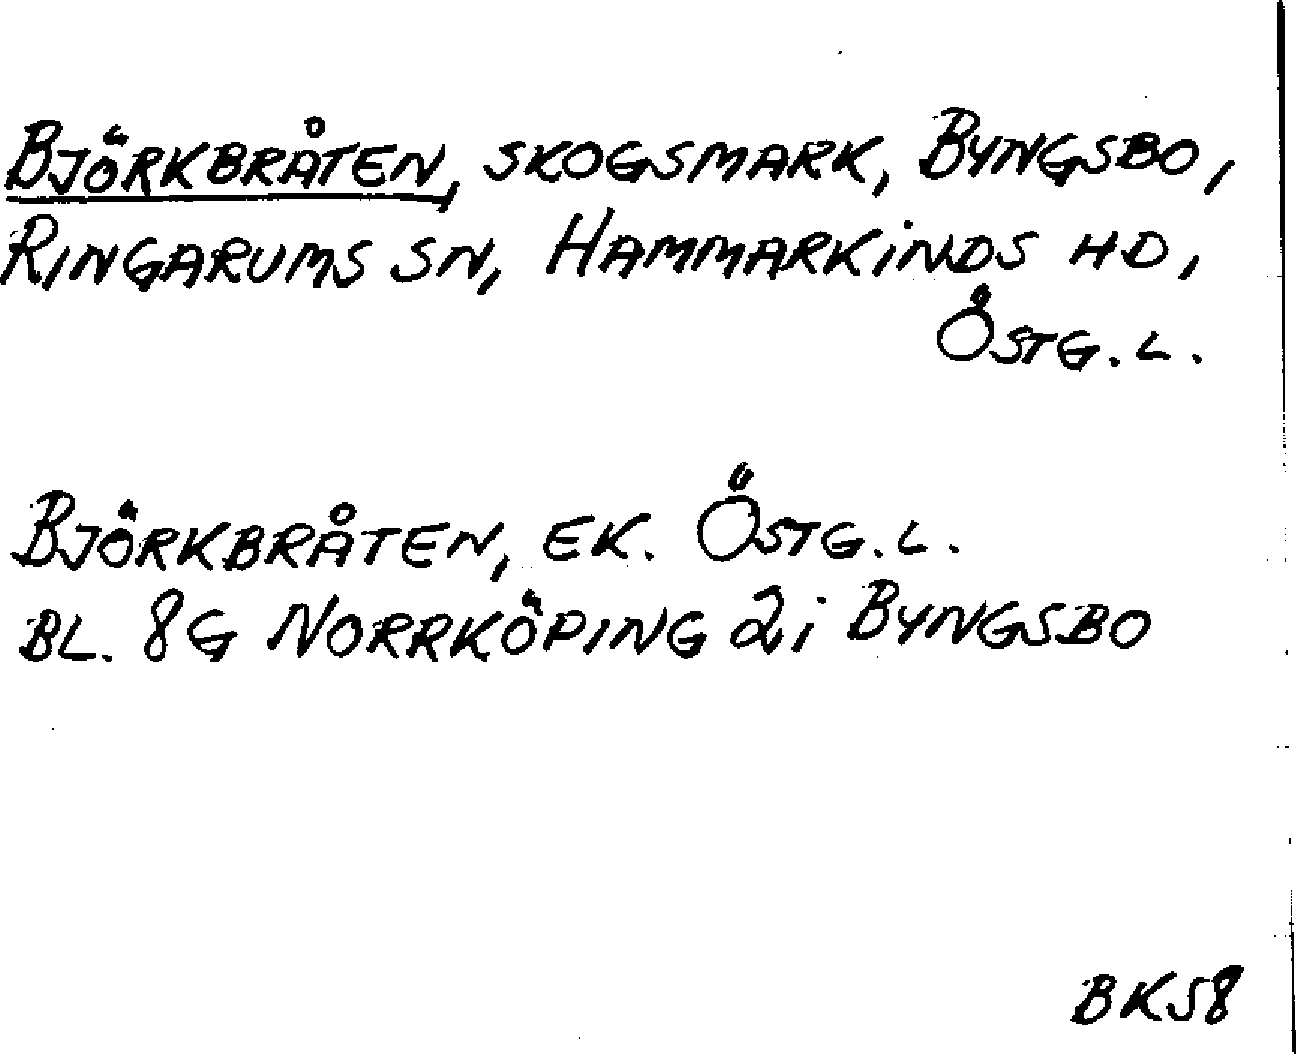 Björkbråten, skogsmark, Byngsbo,
Ringarums sn, Hammarkinds hd,
Östg. l.
Björkbråten, ek. Östg. l.
bl. 8G Norrköping 2i Byngsbo
BK58